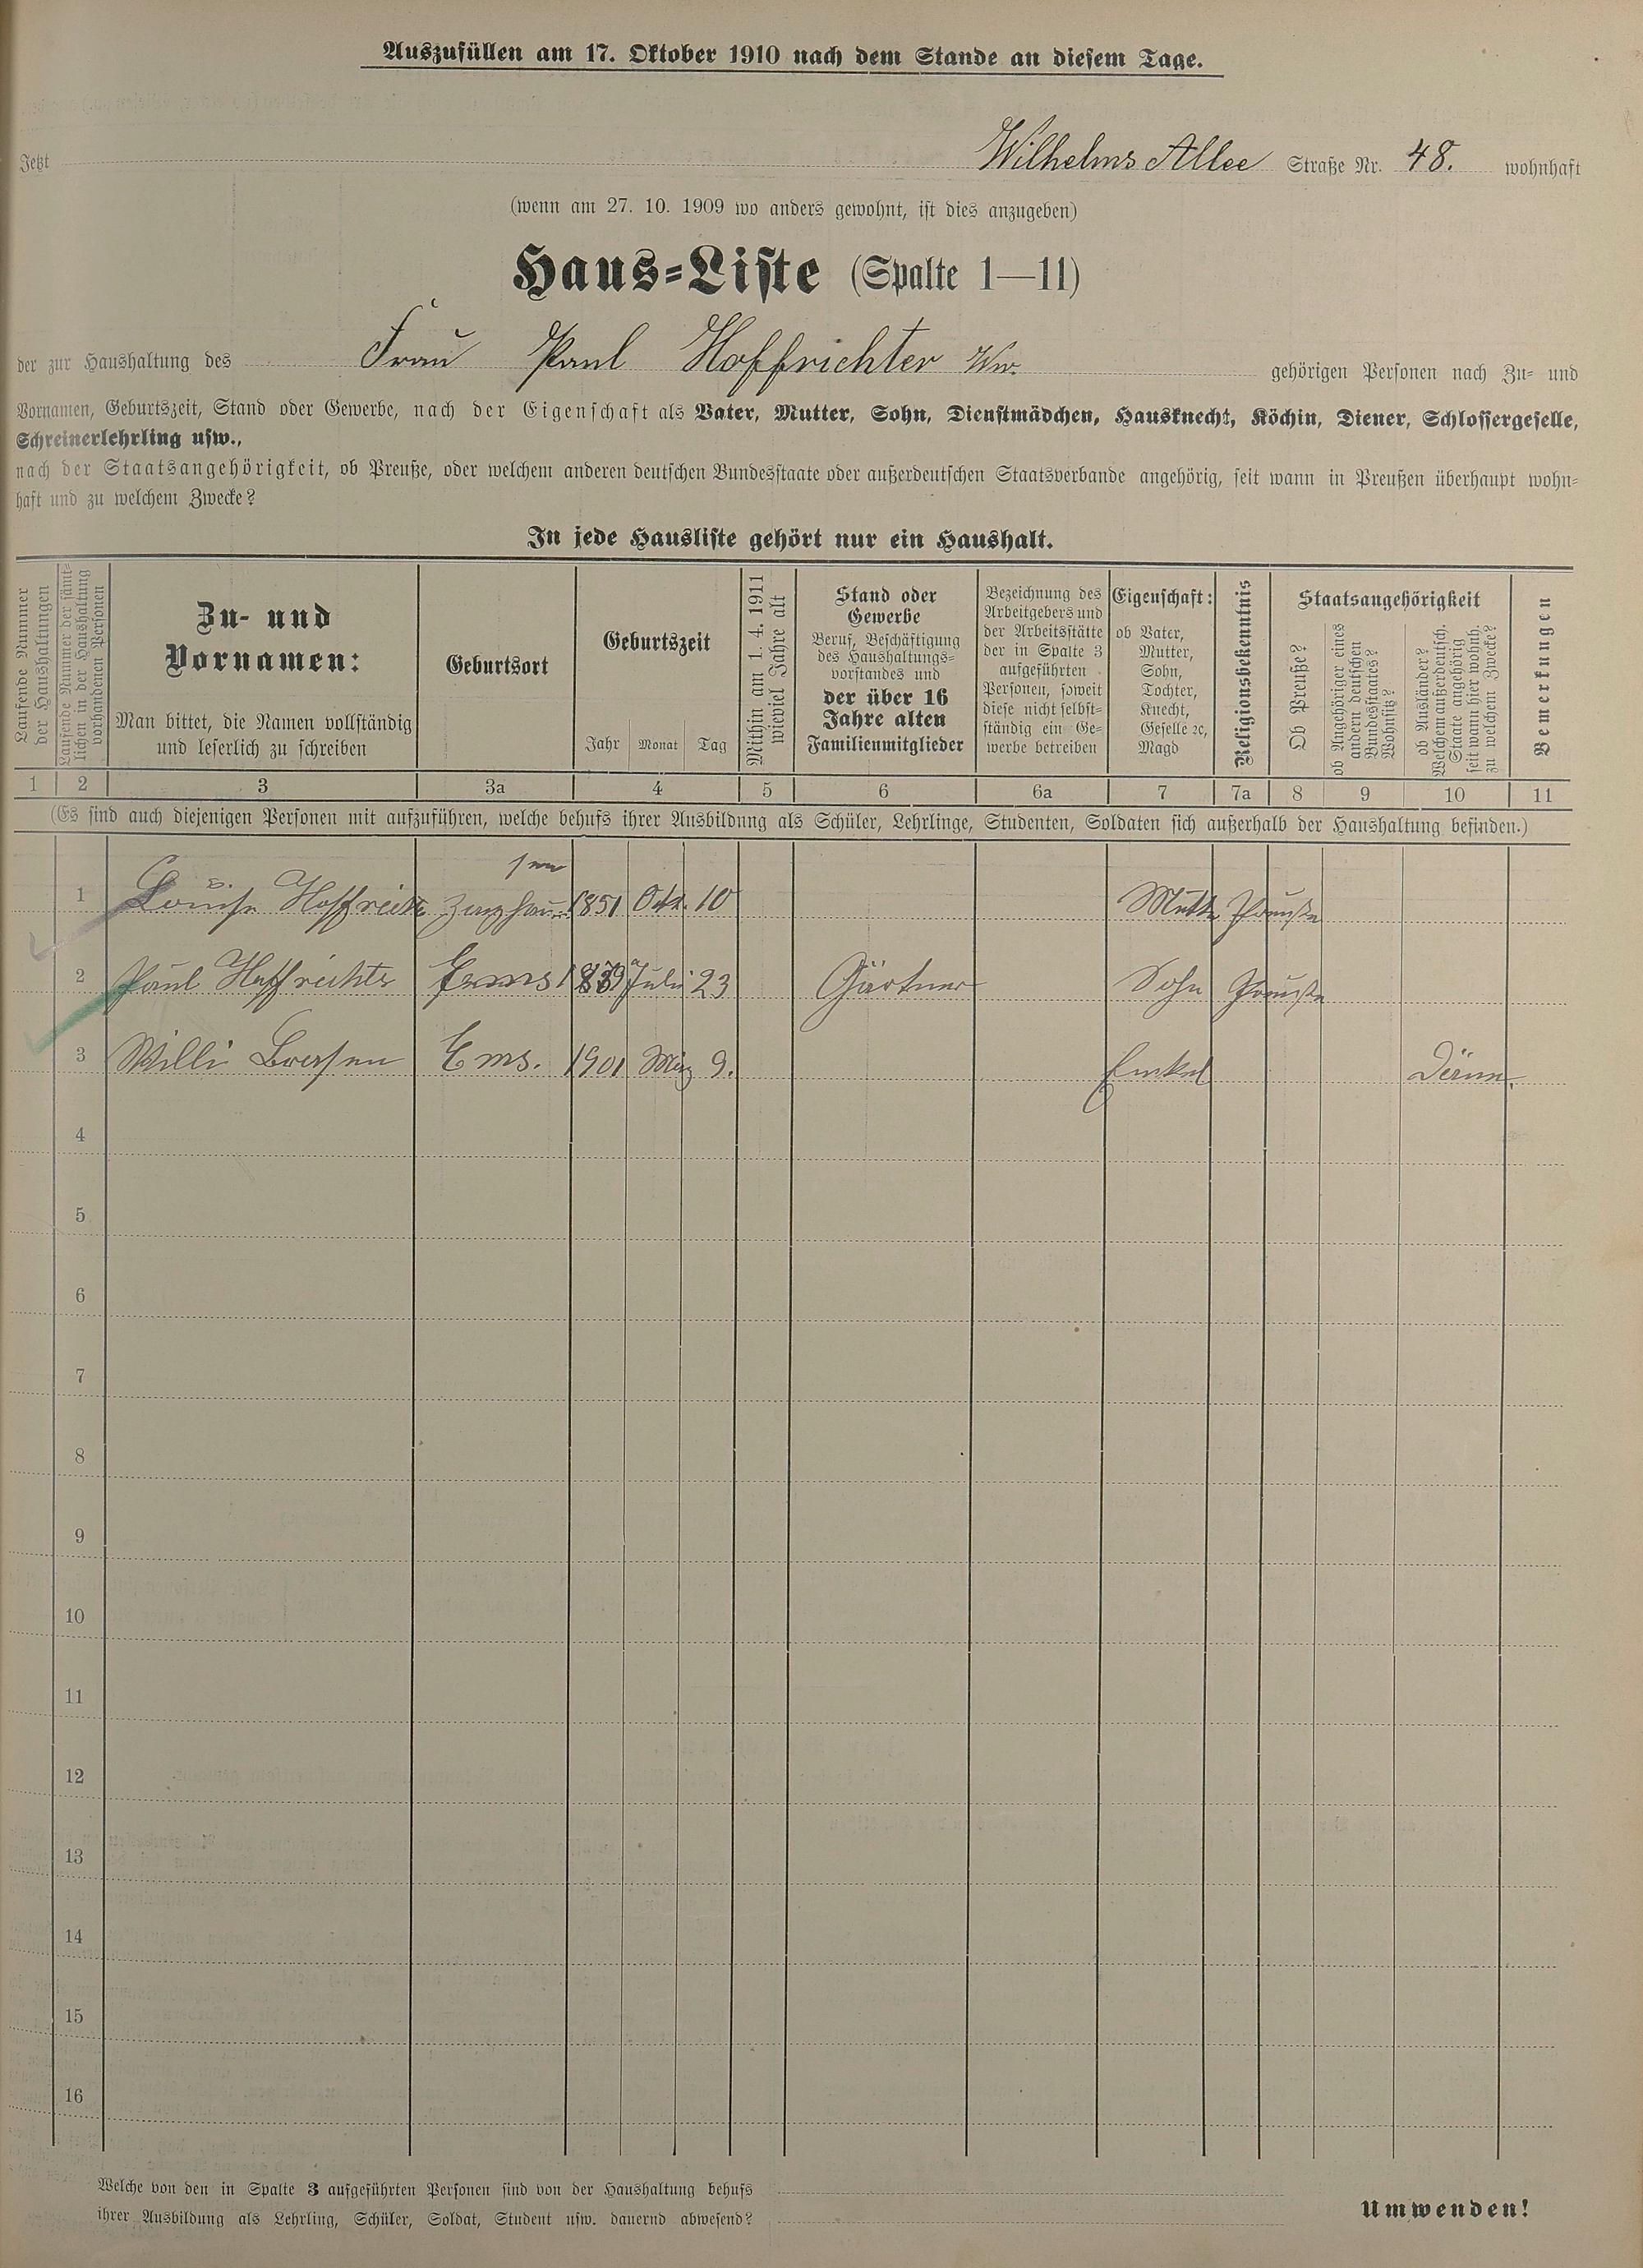 Auszufüllen am 17. Oktober 1910 nach dem Stande an diesem Tage.
Jetzt Wilhelms Allee Straße Nr. 48. wohnhaft
(wenn am 27. 10. 1909 wo anders gewohnt, ist dies anzugeben)
Haus-Liste (Spalte 1—11)
der zur Haushaltung des Frau Paul Hoffrichter Ww. gehörigen Personen nach Zu- und
Vornamen, Geburtszeit, Stand oder Gewerbe, nach der Eigenschaft als Vater, Mutter, Sohn, Dienstmädchen, Hausknecht, Köchin, Diener, Schlossergeselle,
Schreinerlehrling usw.,
nach der Staatsangehörigkeit, ob Preuße, oder welchem anderen deutschen Bundesstaate oder außerdeutschen Staatsverbande angehörig, seit wann in Preußen überhaupt wohn-
haft und zu welchem Zwecke?
In jede Hausliste gehört nur ein Haushalt.
Laufende Nummer
der Haushaltungen
Laufende Nummer der sämt-
lichen in der Haushaltung
vorhandenen Personen
Zu- und
Vornamen:
Man bittet, die Namen vollständig
und leserlich zu schreiben
Geburtsort
Geburtszeit
Jahr Monat Tag
Mithin am 1. 4. 1911
wieviel Jahre alt
Stand oder
Gewerbe
Beruf, Beschäftigung
des Haushaltungs-
vorstandes und
der über 16
Jahre alten
Familienmitglieder
Bezeichnung des
Arbeitgebers und
der Arbeitsstätte
der in Spalte 3
aufgeführten
Personen, soweit
diese nicht selbst-
ständig ein Ge-
werbe betreiben
Eigenschaft:
ob Vater,
Mutter,
Sohn,
Tochter,
Knecht,
Geselle ꝛc,
Magd
Religionsbekenntnis
Staatsangehörigkeit
Ob Preuße?
ob Angehöriger eines
andern deutschen
Bundesstaates?
Wohnsitz?
ob Ausländer?
Welchem außerdeutsch.
Staate angehörig
seit wann hier wohnh.
zu welchem Zwecke?
Bemerkungen
1 2 3 3a 4 5 6 6a 7 7a 8 9 10 11
(Es sind auch diejenigen Personen mit aufzuführen, welche behufs ihrer Ausbildung als Schüler, Lehrlinge, Studenten, Soldaten sich außerhalb der Haushaltung befinden.)
1 Louise Hoffricht 1851 Okt. 10 Mutter Preuße
2 Paul Hoffrichter Ems Juli 23 Gärtner Sohn Preuße
3 Willi Ems. 1901 März 9. Enkel
4
5
6
7
8
9
10
11
12
13
14
15
16
Welche von den in Spalte 3 aufgeführten Personen sind von der Haushaltung behufs
ihrer Ausbildung als Lehrling, Schüler, Soldat, Student usw. dauernd abwesend?
Umwenden!